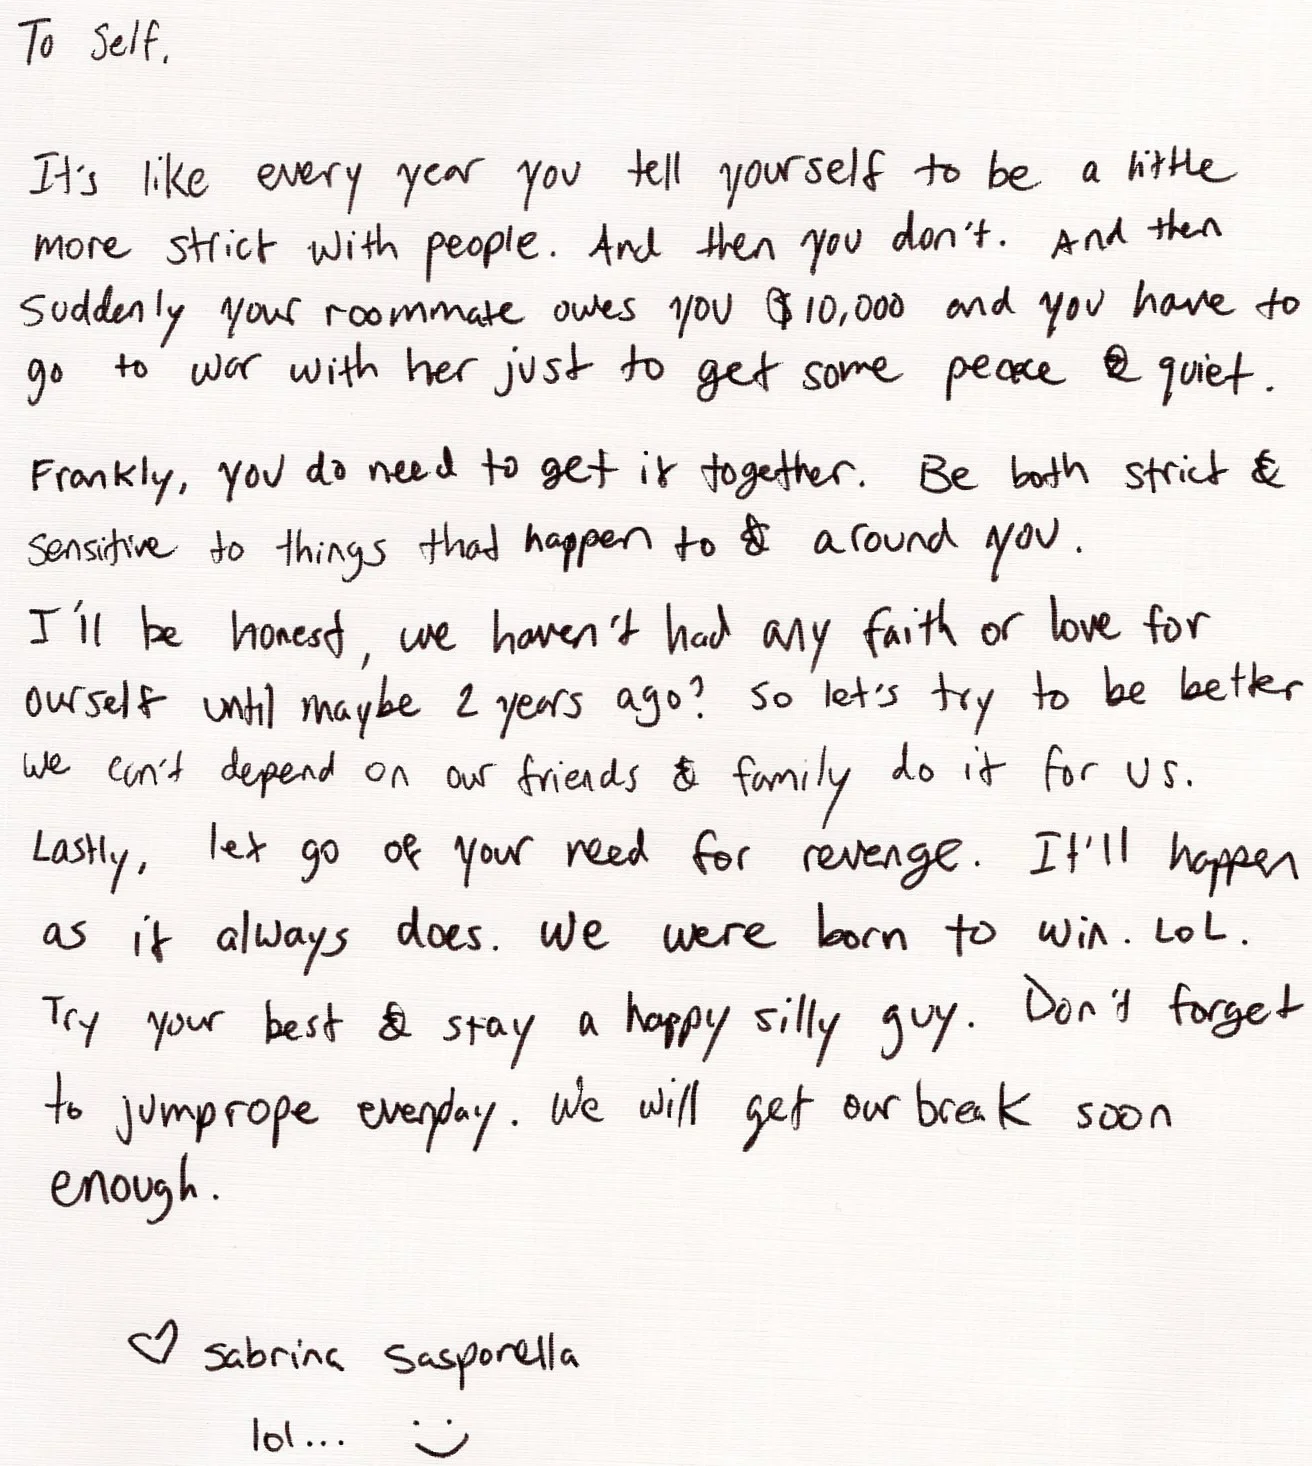 To Self,
It's like every year you tell yourself to be a little
more strict with people. And then you don't. And then
suddenly your roommate owes you $10,000 and you have to
go to war with her just to get some peace & quiet.
Frankly, you do need to get it together. Be both strict &
sensitive to things that happen to & around you.
I'll be honest, we haven't had any faith or love for
ourself until maybe 2 years ago? So let's try to be better
we can't depend on our friends & family do it for us.
Lastly, let go of your need for revenge. It'll happen
as it always does. We were born to win. LOL.
Try your best & stay a happy silly guy. Don't forget
to jumprope everyday. We will get our break soon
enough.
♡ Sabrina Sasporella
lol... :)